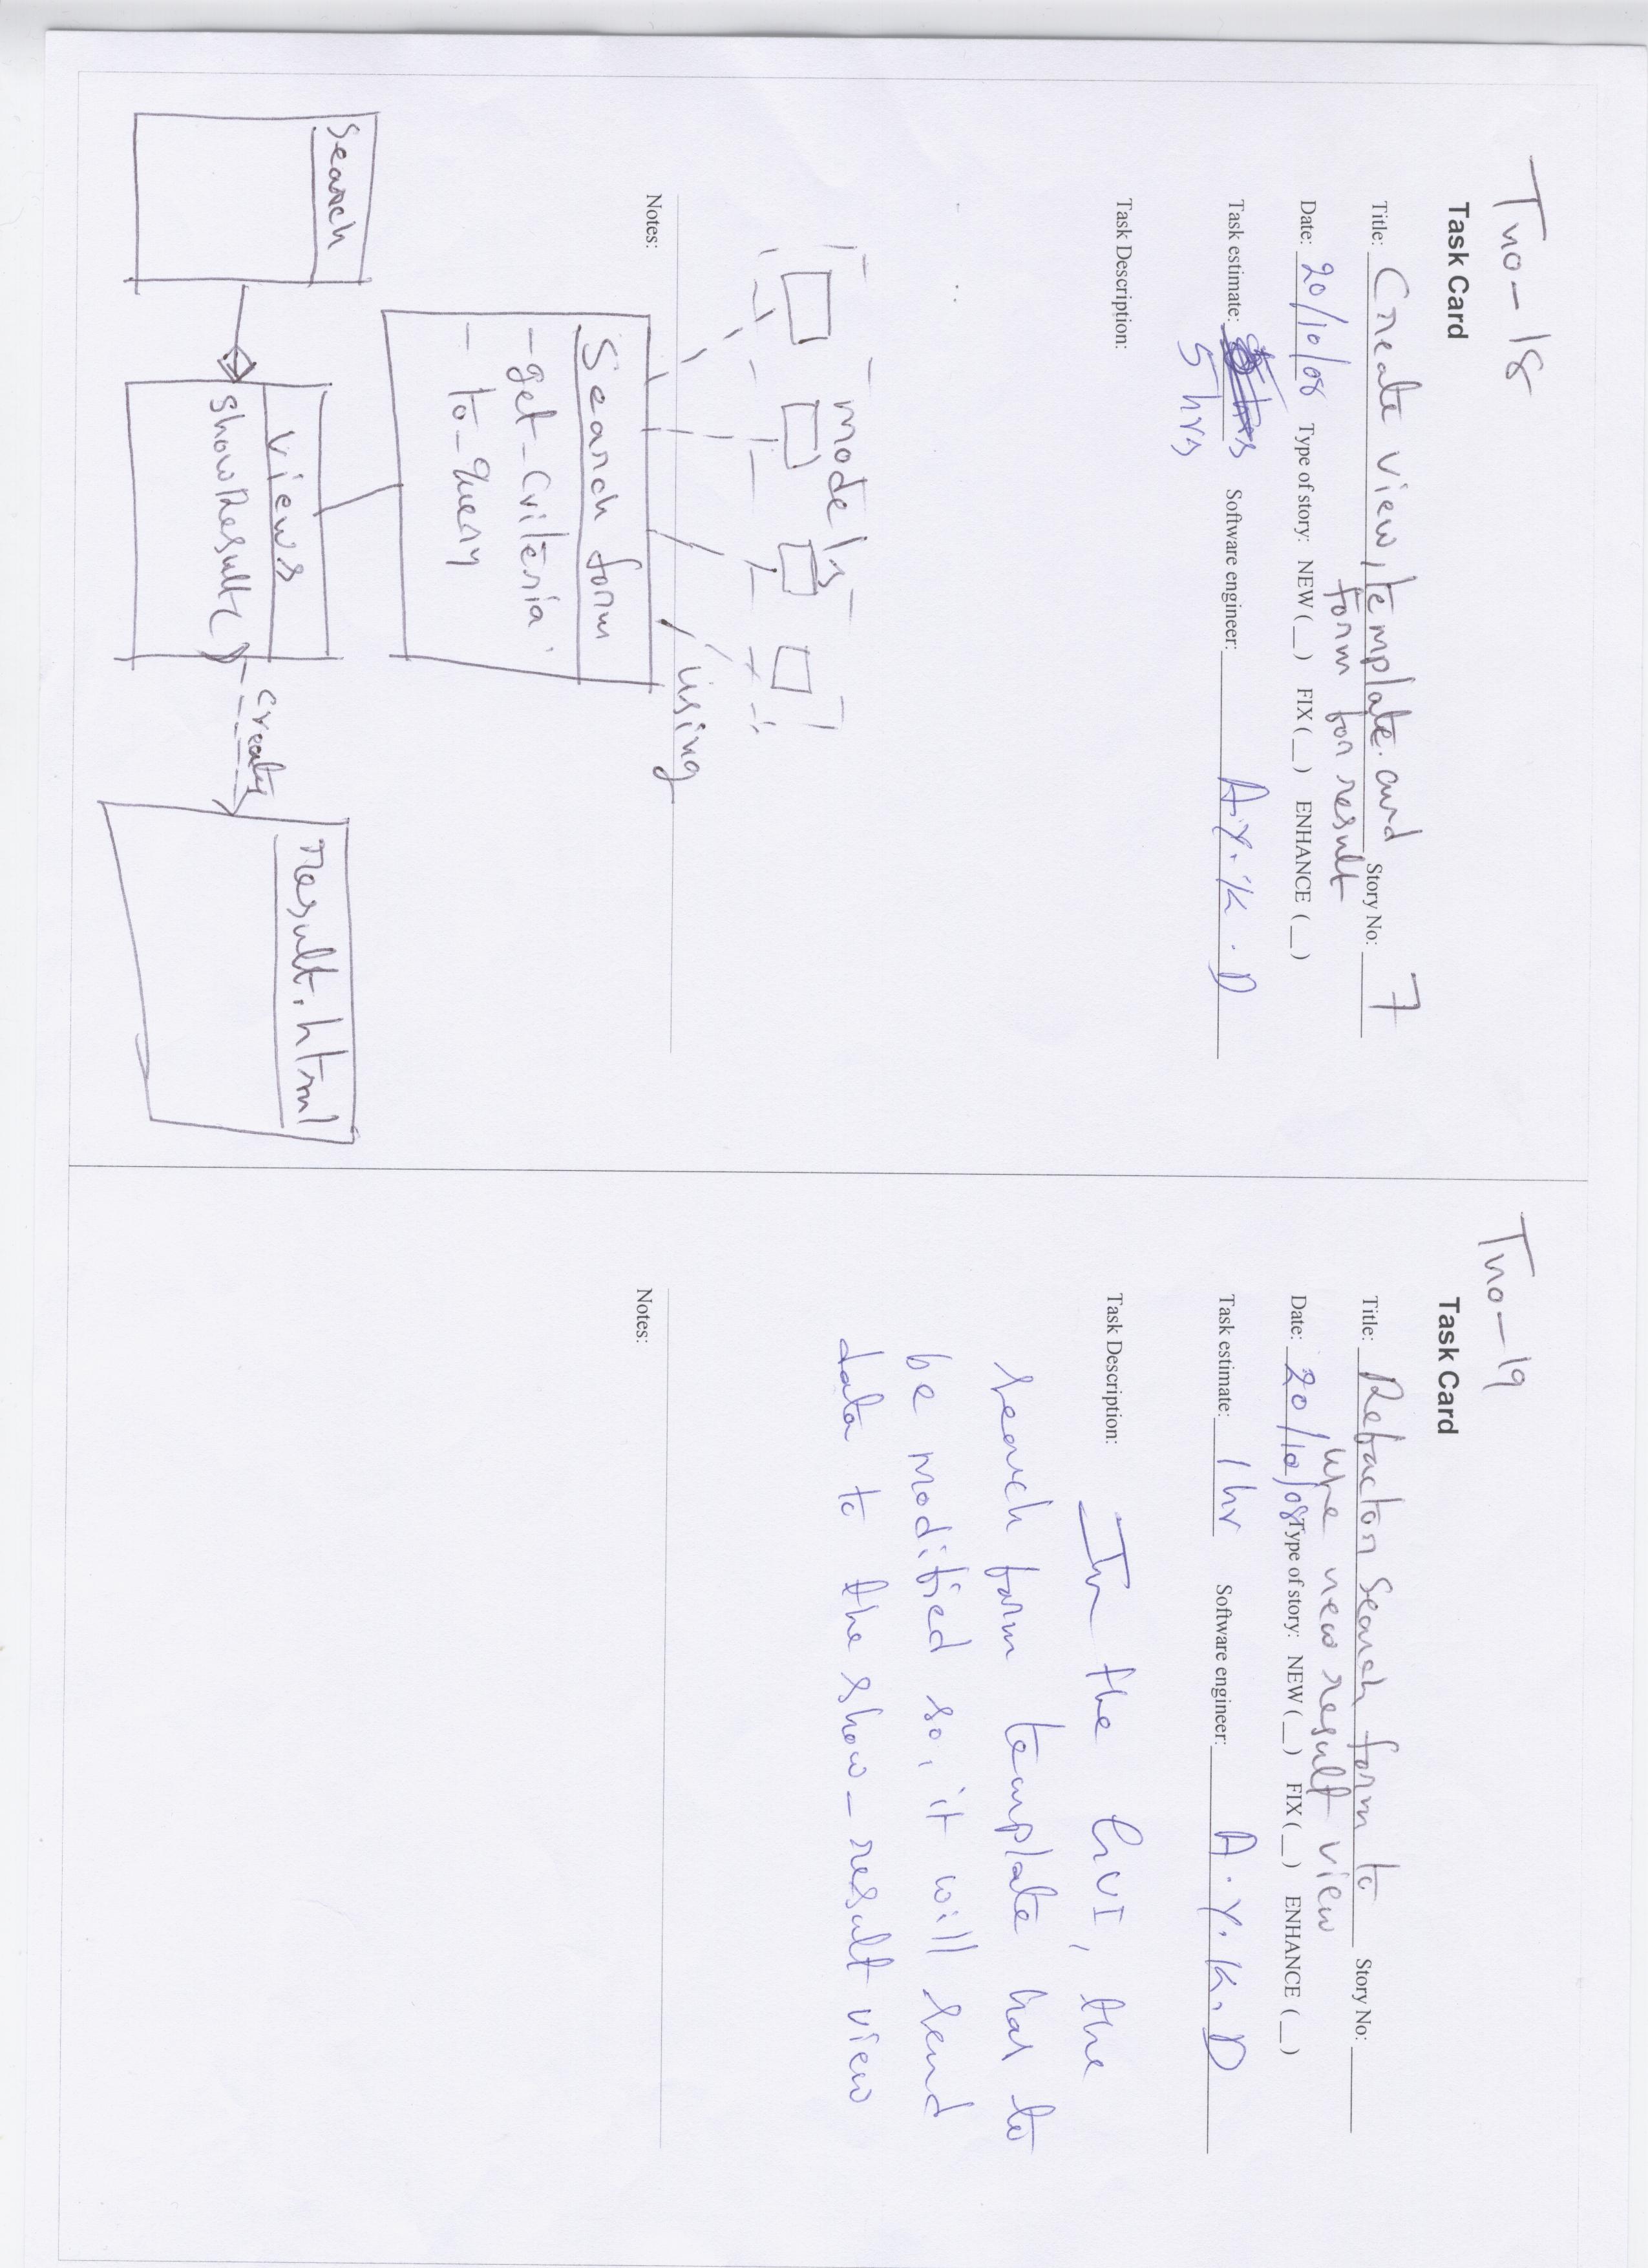 Tno-18
Task Card
Title: Create view, template. and
form for result
Story No: 7
Date: 20/10/08 Type of story: NEW (__) FIX (__) ENHANCE (__)
Task estimate: 5 hrs Software engineer: A.Y.K.D
Task Description:
models
using
Notes:
Search form
- get_Criteria
- to_Query
Search
views
showResult()
creates
Result.html
Tno-19
Task Card
Title: Refactor search form to
use new result view
Story No:
Date: 20/10/08 Type of story: NEW (__) FIX (__) ENHANCE (__)
Task estimate: 1 hr Software engineer: A.Y.K.D
Task Description: In the GUI, the
search form template has to
be modified so, it will send
data to the show_result view
Notes: